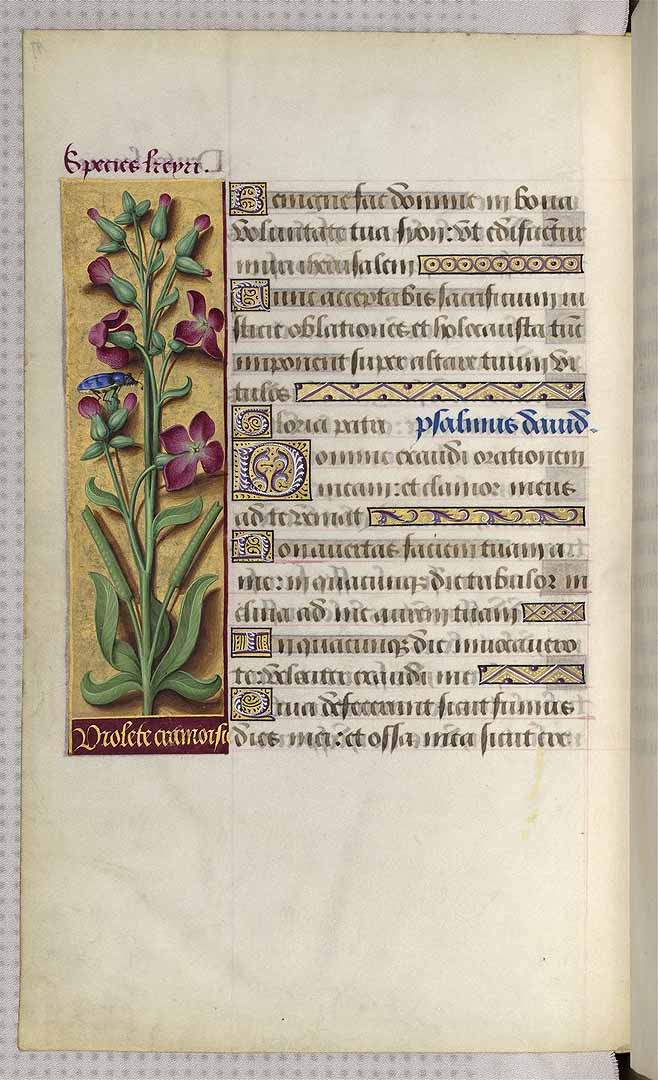 Species keyri.
Benigne fac domine in bona
voluntate tua syon: vt edificentur
muri iherusalem
Tunc acceptabis sacrificium iu
sticie oblationes et holocausta tūc
imponent super altare tuum vi
tulos
Gloria patri psalmus dauid.
Domine exaudi orationem
meam: et clamor meus
ad te veniat
Non auertas faciem tuam a
me: in quacunq; die tribulor in
clina ad me aurem tuam
In quacunq; die inuocauero
te velociter exaudi me
Quia defecerunt sicut fumus
dies mei: et ossa mea sicut cre
Violete cramoisi